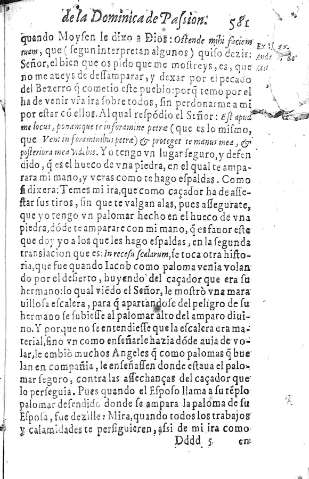 de la Dominica de Pasion. 581
quando Moysen le dixo a Dios: Ostende mihi faciem
tuam, que (segun interpretan algunos) quiso dezir:
Señor, el bien que os pido que me mostreys, es, que
no me aueys de dessamparar, y dexar por el pecado
del Bezerro q̃ cometio este pueblo: porq̃ temo por el
ha de venir vr̃a ira sobre todos, sin perdonarme a mi
por estar cõ ellos. Al qual respõdio el Señor: Est apud
me locus, ponamque te in foramine petræ (que es lo mismo,
que Veni in foraminibus petræ) & proteget te manus mea, &
posteriora mea videbis. Yo tengo vn lugar seguro, y defen
dido, q̃ es el hueco de vna piedra, en el qual te ampa-
rara mi mano, y veras como te hago espaldas. Como
si dixera: Temes mi ira, que como caçador ha de asse-
star sus tiros, sin que te valgan alas, pues assegurate,
que yo tengo vn palomar hecho en el hueco de vna
piedra, dõde te ampare con mi mano, q̃ es fauor este
que doy yo a los que les hago espaldas, en la segunda
translacion que es: In recessu scalarum, se toca otra histo-
ria, que fue quando Iacob como paloma venia volan
do por el desierto, huyendo del caçador que era su
hermano: lo qual viẽdo el Señor, le mostrò vna mara
uillosa escalera, para q̃ apartandose del peligro de su
hermano se subiesse al palomar alto del amparo diui-
no. Y porque no se entendiesse que la escalera era ma-
terial, sino vn como enseñarle hazia dõde auia de vo-
lar, le embiò muchos Angeles q̃ como palomas q̃ bue
lan en compañia, le enseñassen donde estaua el palo-
mar seguro, contra las assechanças del caçador que
lo perseguia. Pues quando el Esposo llama a su tẽplo
palomar defendido donde se ampara la paloma de su
Esposa, fue dezille: Mira, quando todos los trabajos
y calamidades te persiguieren, assi de mi ira como
Dddd 5 en